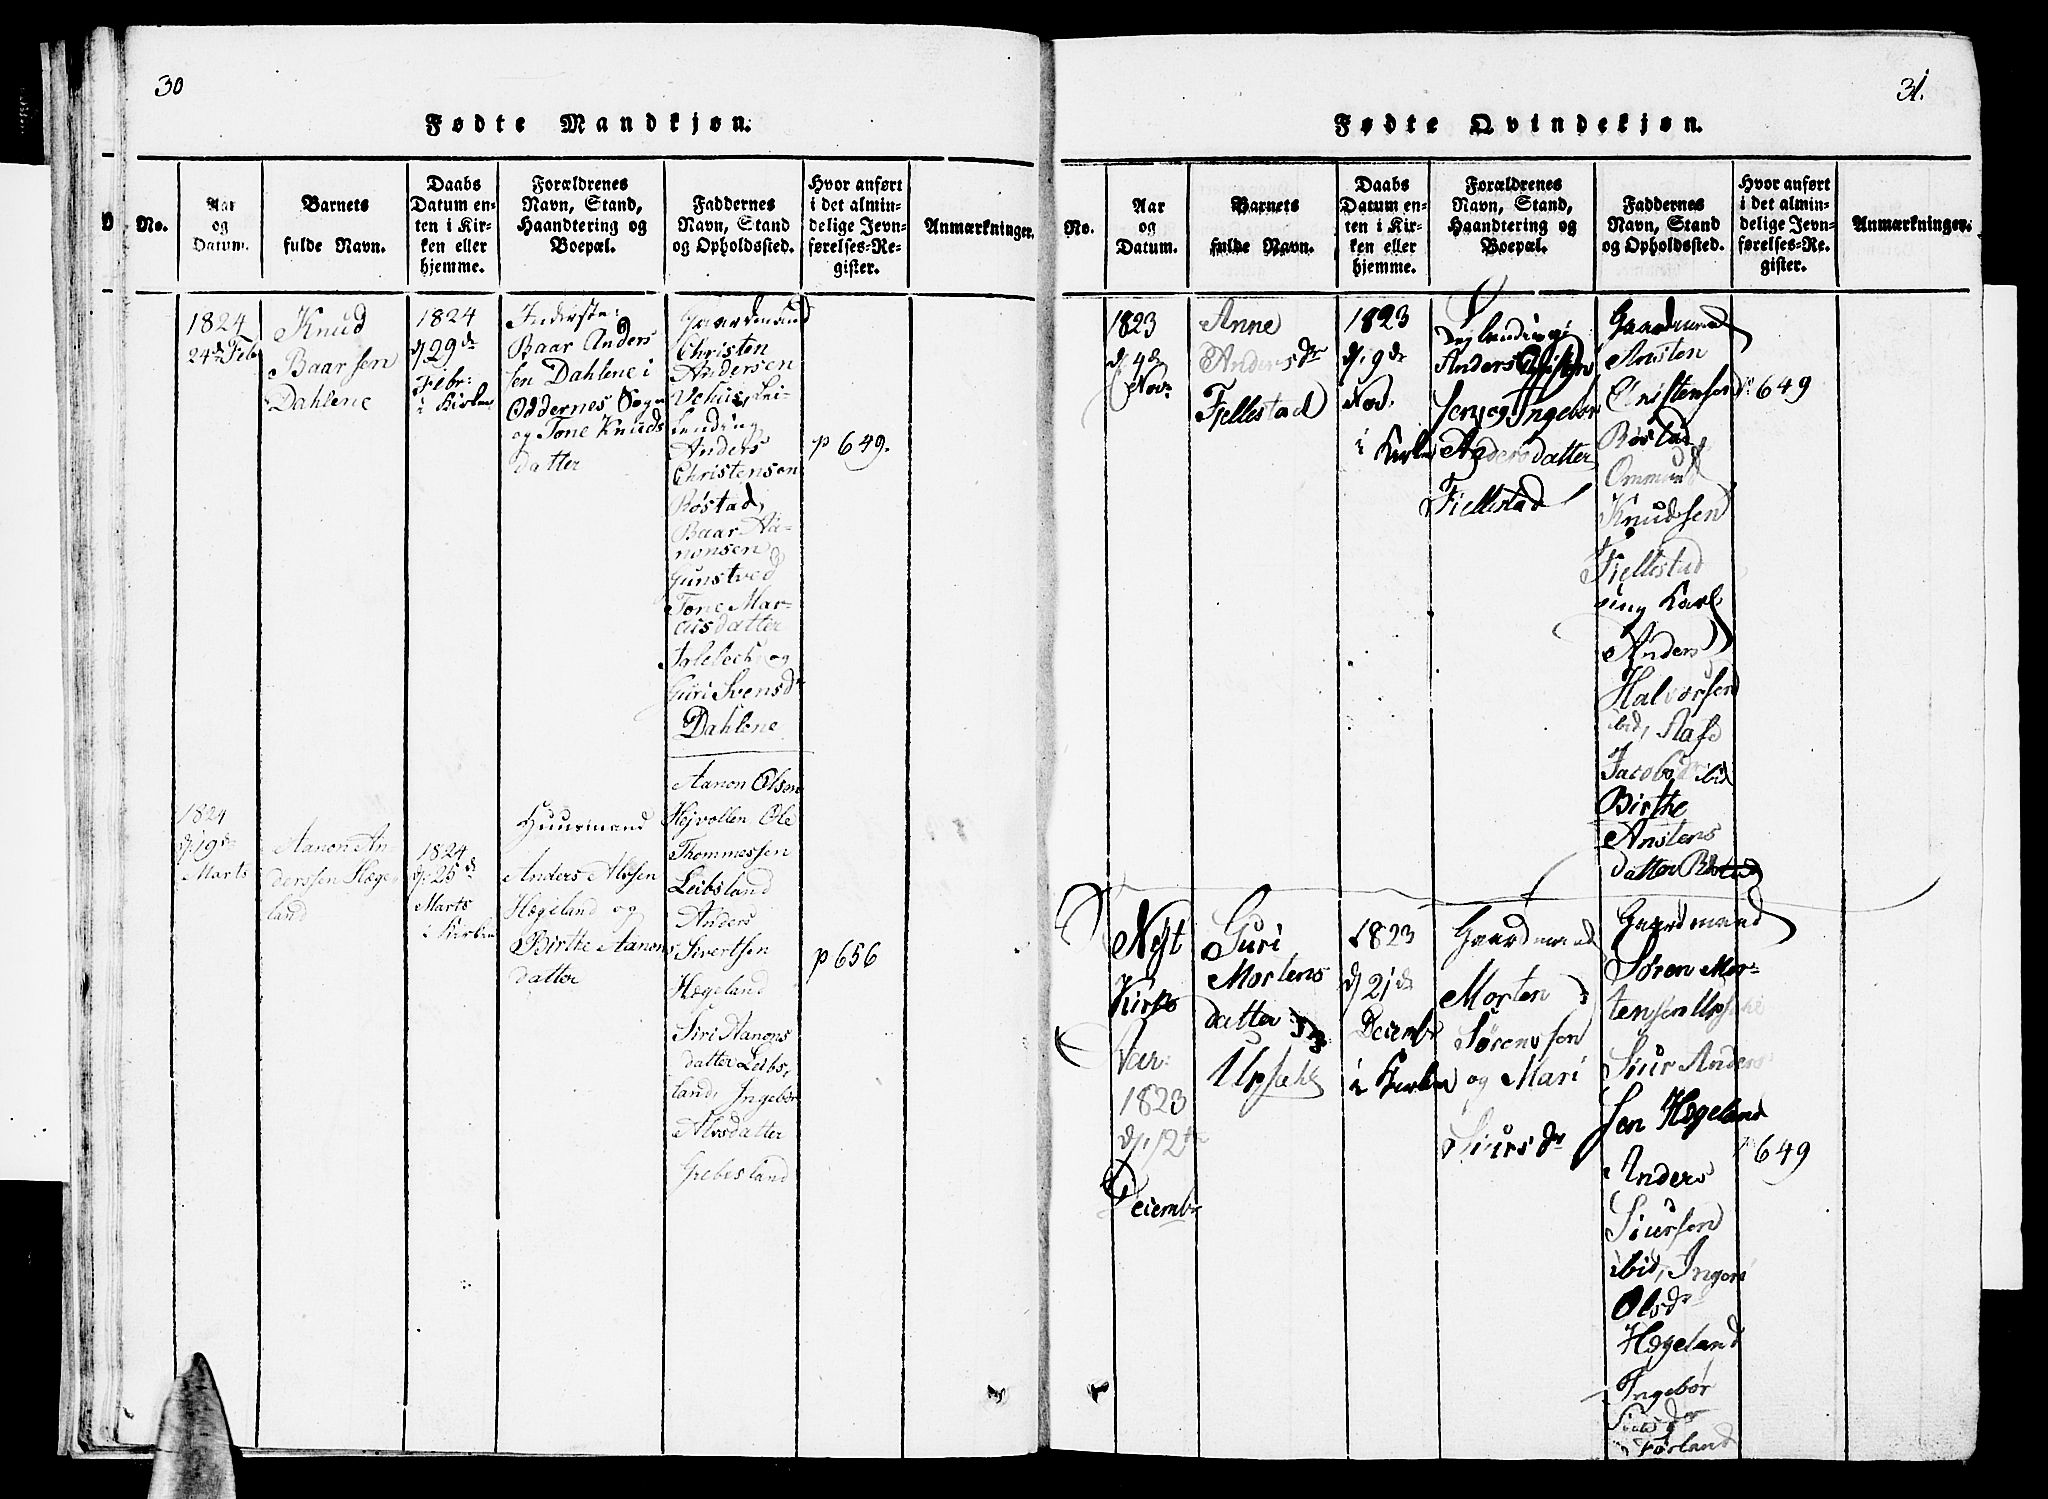 30
Fødte Mandkjøn.
No.
Aar
og
Datum.
Barnets
fulde Navn.
Daabs
Datum en-
ten i Kir-
ken eller
hjemme.
Forældrenes
Navn, Stand,
Haandtering og
Boepæl.
Faddernes
Navn, Stand
og Opholdssted.
Hvor anført
i det almin-
delige Jevn-
førelses-Re-
gister.
Anmærkninger.
1824
24de Feb
Knud
Baarsen
Dahlene
1824
d 29de
Febr:
i Kirken
Inderste:
Baar Anders
sen Dahlene i
Oddernes Sogn
og Tone Knuds
datter
Gaardmand
Christen
Andersen
Lei-
lending
Anders
Christensen
Røstad,
Baar Aa-
nonsen
Gunstved
Tone Mar-
cusdatter
og
Guri Svensdr
Dahlene
p 649.
1824
d 19de
Marts
Aanon An
derssen Hæge
land
1824
d 25de
Marts
i Kirken
Huusmand
Anders Alvsen
Hægeland og
Birthe Aanons
datter
Aanon Olsen
Hejvollen Ole
Thommessen
Leibsland
Anders
Sivertsen
Hægeland
Siri Aanons
datter Leibs,
land, Ingebor
Alvsdatter
Grebesland
p 656
31.
Fødte Qvindekjøn.
No.
Aar
og
Datum.
Barnets
fulde Navn.
Daabs
Datum en-
ten i Kir-
ken eller
hjemme.
Forældrenes
Navn, Stand,
Haandtering og
Boepæl.
Faddernes
Navn, Stand
og Opholdssted.
Hvor anført
i det almin-
delige Jevn-
førelses-Re-
gister.
Anmærkninger.
1823
d 4de
Nov.
Anne
Andersdr
Fjellestad
1823
d 9de
Nov.
i Kirken
Anders Christen
sen og Ingebor
Andersdatter
Fjellestad
Gaardmand
Ansten
Christensen
Røstad
Ommund
Knudsen
Fjellestad
ung Karl
Anders
Halvorsen
ibid, Aase
Jacobsdr ibid
Birthe
Anstens
datter Røstad
p 649
Nyt
Kirke
Aar
1823
d 12te
Decembr
Guri
Mortens
datter
Upsahl
1823
d 21de
Decembr
i Kirken
Gaardmand
Morten
Sørenssen
og Mari
Siursdr
Gaardmand
Søren Mor-
tensen Upsahl
Siur Anders
sen Hægeland
Anders
Siursen
ibid, Ingeri
Olsdr
Hægeland
Ingebor
Siursdr
Førland
p 649